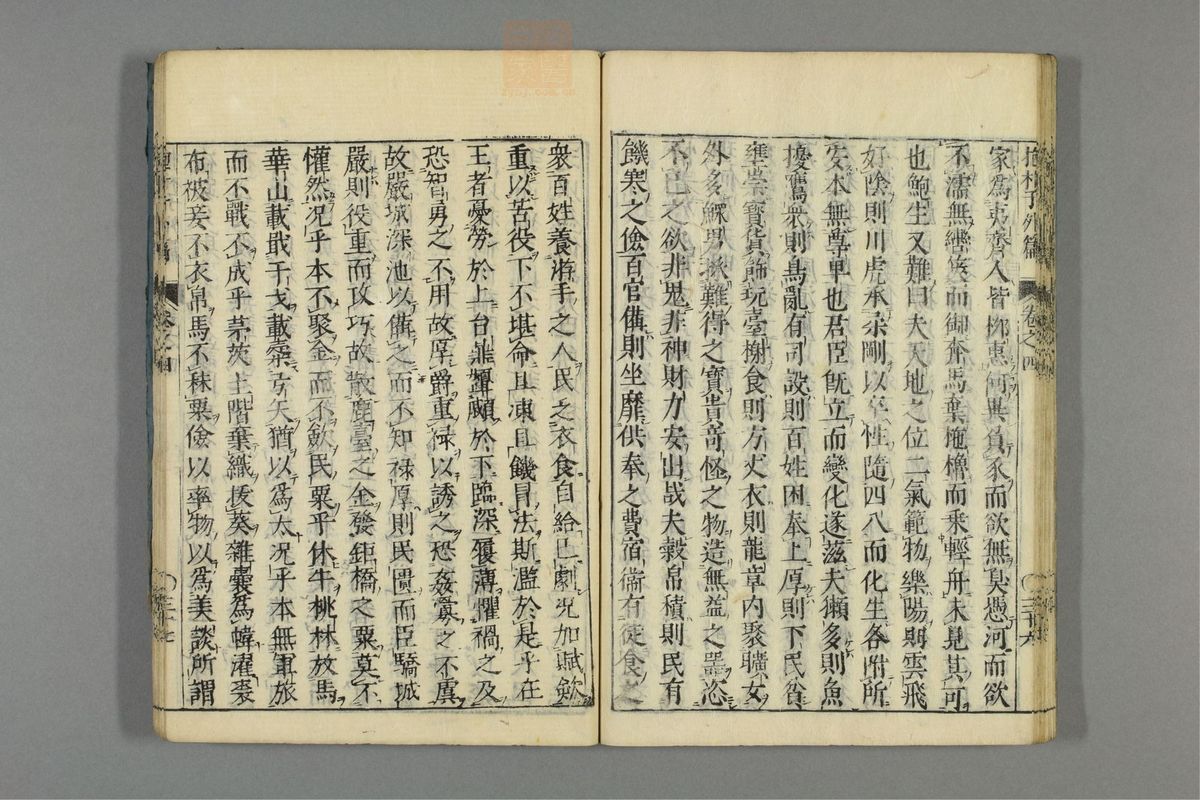 抱朴子外篇 卷之四
家爲夷齊人皆柳惠何異負豕而欲無臭憑河而欲
不濡無轡筴而御奔馬棄柂櫓而乗輕舟未見其可
也鮑生又難曰夫天地之位二氣範物樂陽則雲飛
好陰則川處承柔剛以率性隨四八而化生各附所
安本無尊卑也君臣既立而變化遂滋夫獺多則魚
擾鷹衆則鳥亂有司設則百姓困奉上厚則下民貧
壅崇寳貨飾玩臺榭食則方丈衣則龍章内聚曠女
外多鰥男採難得之寳貴奇怪之物造無益之器恣
不已之欲非鬼非神財力安出哉夫穀帛積則民有
饑寒之儉百官備則坐靡供奉之費宿衞有徒食之
衆百姓養游手之人民之衣食自給已劇况加賦歛
重以苦役下不堪命且凍且饑冒法斯濫於是乎在
王者憂勞於上台鼎顰顣於下臨深履薄懼禍之及
恐智勇之不用故厚爵重禄以誘之恐姦釁之不虞
故嚴城深池以備之而不知禄厚則民匱而臣驕城
嚴則役重而攻巧故散鹿臺之金發鉅橋之粟莫不
懽然况乎本不聚金而不歛民粟乎休牛桃林放馬
華山載戢干戈載櫜弓矢猶以爲太况乎本無軍旅
而不戰不戍乎茅茨土階棄織拔葵雜囊爲幃濯裘
布被妾不衣帛馬不秣粟儉以率物以爲美談所謂